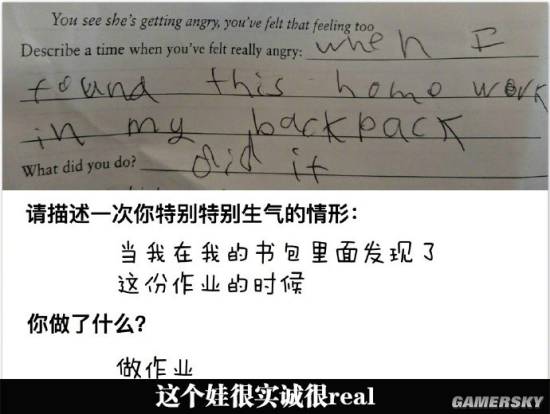 You see she's getting angry, you've felt that feeling too
Describe a time when you've felt really angry: when I
found this homo work
in my backpack
What did you do? did it
请描述一次你特别特别生气的情形：
当我在我的书包里面发现了
这份作业的时候
你做了什么？
做作业
这个娃很实诚很real
GAMERSKY